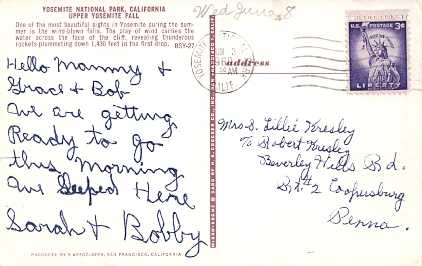 YOSEMITE NATIONAL PARK, CALIFORNIA
UPPER YOSEMITE FALL
One of the most beautiful sights in Yosemite during the summer
is the wind-blown falls. The play of wind carries the
water across the face of the cliff, revealing thunderous
rockets plummeting down 1,430 feet in the first drop. BSY-27
Hello Mammy &
Grace & Bob
We are getting
Ready to go
this Morning
We Sleeped Here
Sarah & Bobby
PRODUCED BY ASSOCIATES, SAN FRANCISCO, CALIFORNIA
Wed June 8
YOSEMITE
AM
CALIF.
U.S. POSTAGE 3¢
LIBERTY
address
Mrs S. Lillie Kresley
To Robert Kresley
Beverley Hills Bd.
R #2 Coopersburg
Penna.